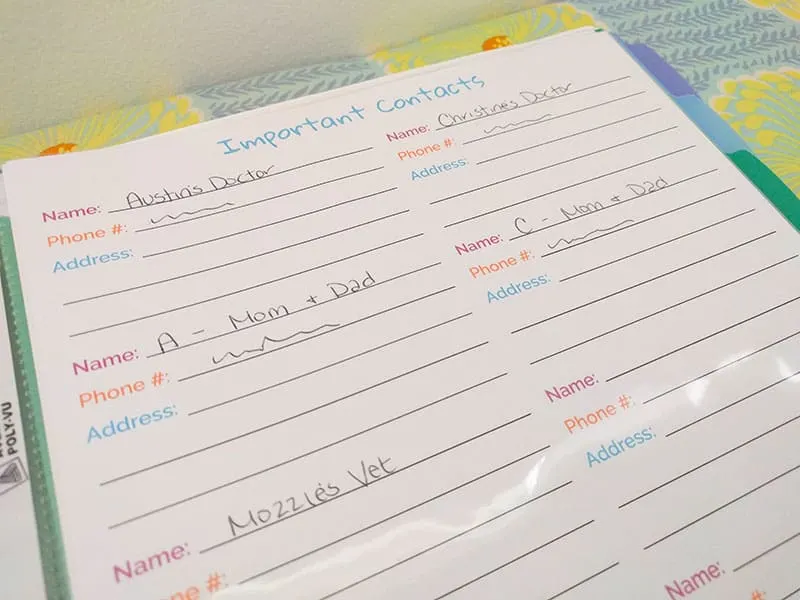 Important Contacts
Name: Austin's Doctor
Phone #:
Address:
Name: Christine's Doctor
Phone #:
Address:
Name: A - Mom + Dad
Phone #:
Address:
Name: C - Mom + Dad
Phone #:
Address:
Name: Mozzie's Vet
Phone #:
Name:
Phone #:
Address:
Name:
POLY-VU